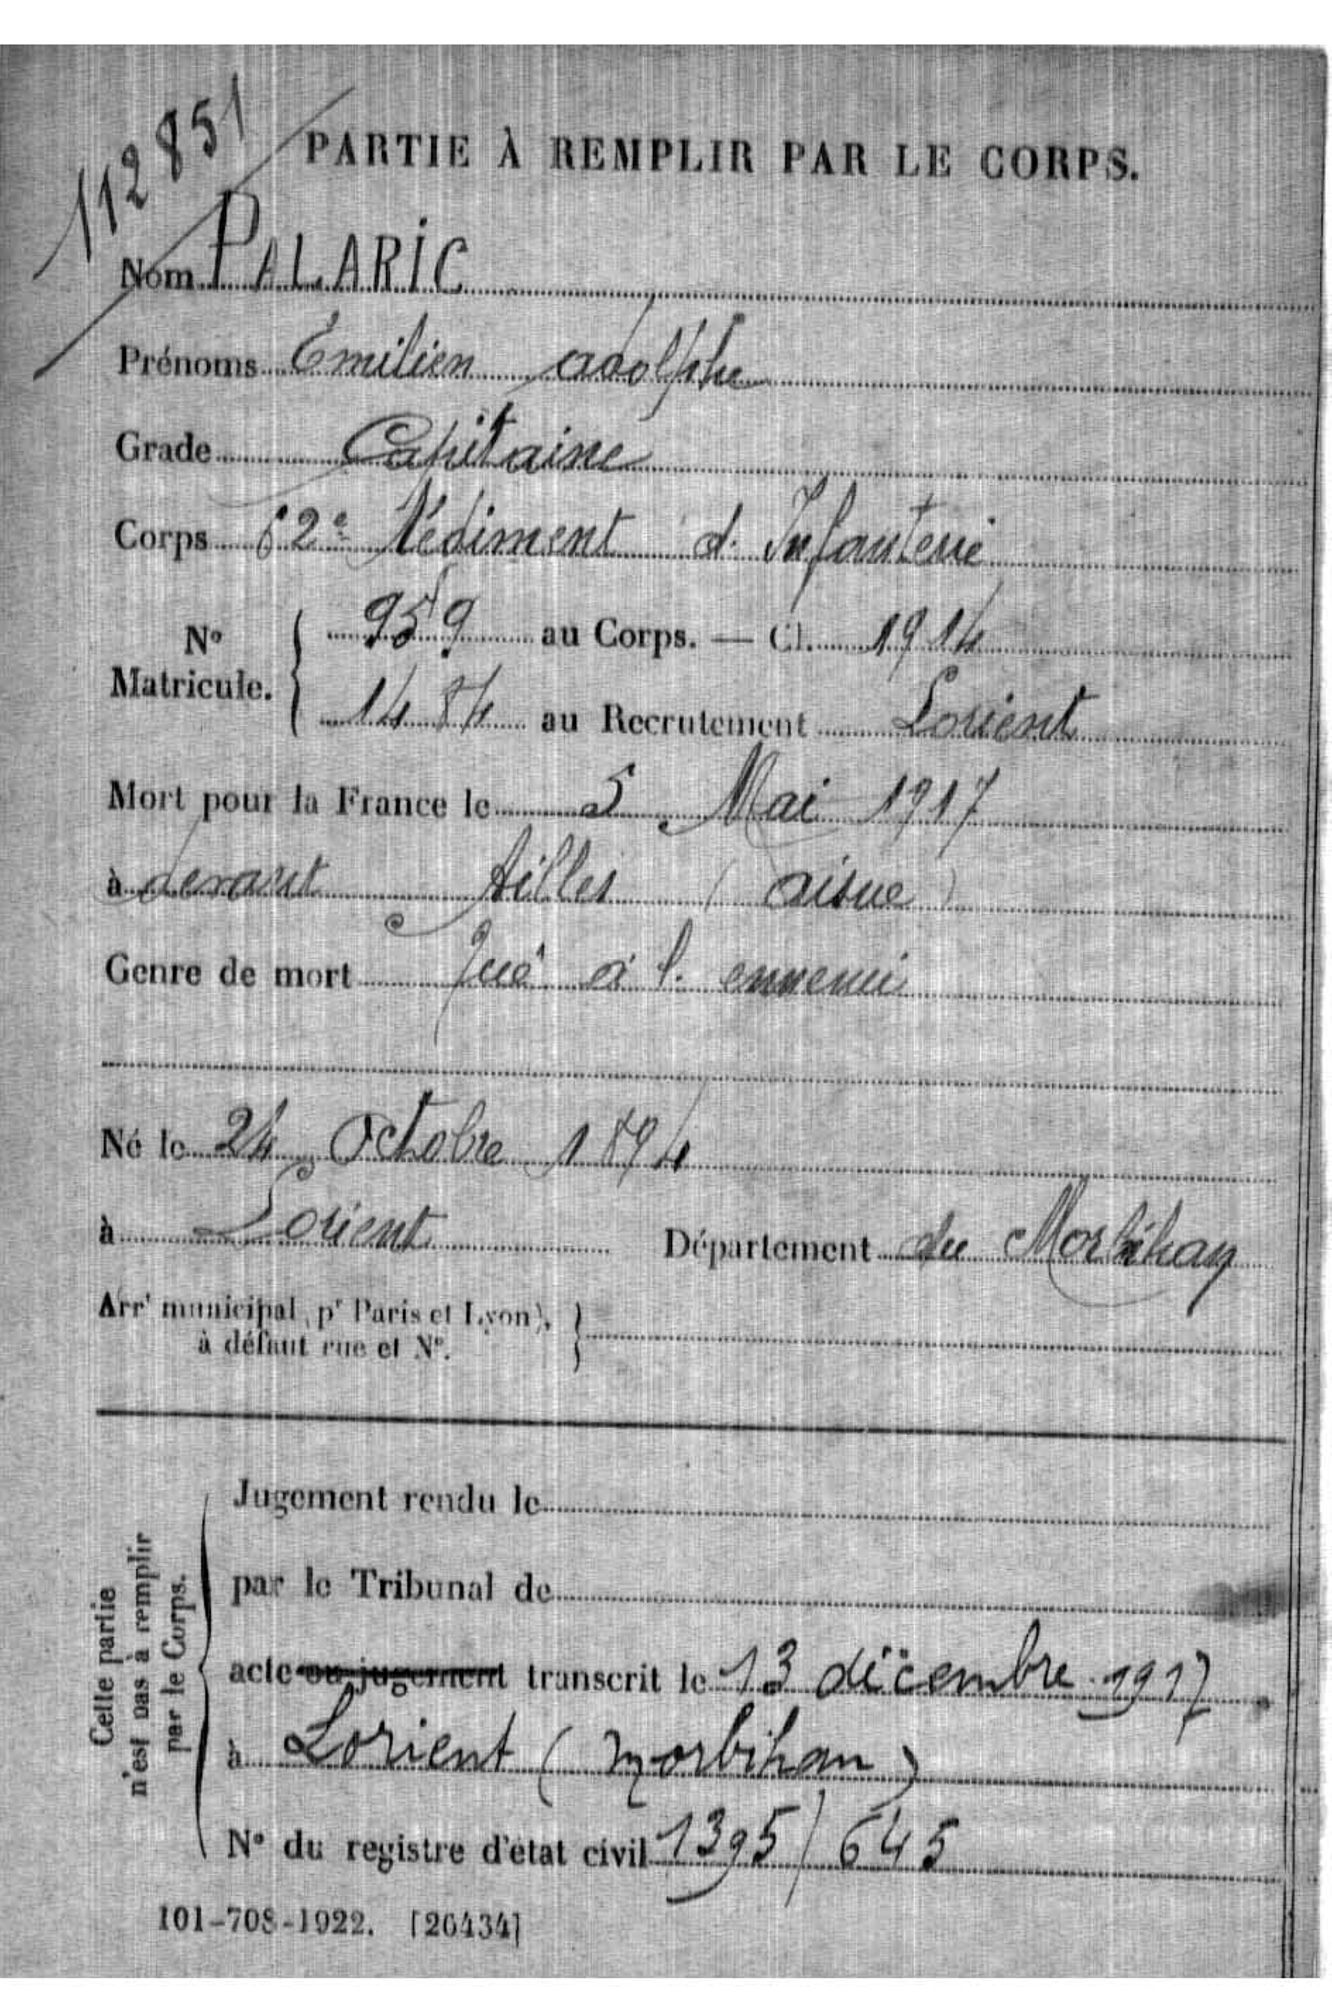 112851
PARTIE À REMPLIR PAR LE CORPS.
Nom PALARIC
Prénoms Emilien Adolphe
Grade Capitaine
Corps 62e Régiment d. Infanterie
No Matricule. 959 au Corps. — Cl. 1914
1484 au Recrutement Lorient
Mort pour la France le 5 Mai 1917
à devant Ailles (Aisne)
Genre de mort Tué à l. ennemi
Né le 24 Octobre 1894
à Lorient Département du Morbihan
Arrt municipal (pr Paris et Lyon),
à défaut rue et No.
Cette partie
n'est pas à remplir
par le Corps.
Jugement rendu le
par le Tribunal de
acte ou jugement transcrit le 13 décembre 1917
à Lorient (Morbihan)
No du registre d'état civil 1395/645
101-708-1922. [26434]